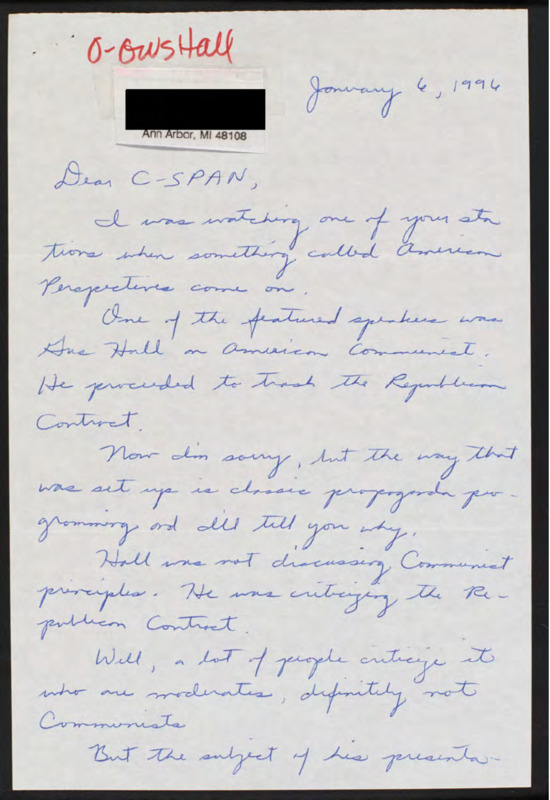 O-OWS Hall
January 6, 1996
Ann Arbor, MI 48108
Dear C-SPAN,
I was watching one of your sta
tions when something called American
Perspectives come on.
One of the featured speakers was
Gus Hall an American Communist.
He proceeded to trash the Republican
Contract.
Now I'm sorry, but the way that
was set up is classic propaganda pro-
gramming and I'll tell you why.
Hall was not discussing Communist
principles. He was criticizing the Re-
publican Contract.
Well, a lot of people criticize it
who are moderates, definitely not
Communists
But the subject of his presenta-